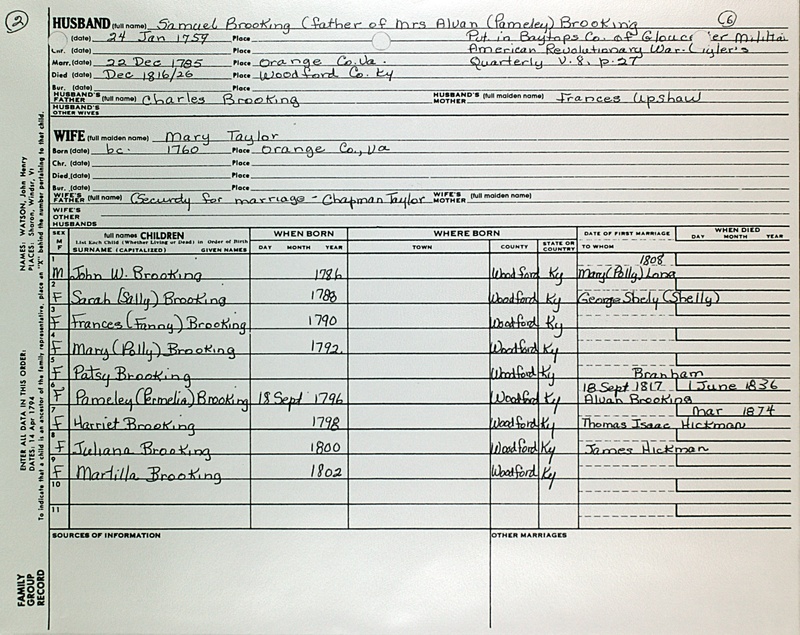 2
6
HUSBAND (full name) Samuel Brooking (father of Mrs Alvan (Pameley) Brooking
(date) 24 Jan 1759 Place Pvt in Baytops Co. of Glouc er Militia
Chr. (date) Place American Revolutionary War-
Marr. (date) 22 Dec 1785 Place Orange Co. Va. Quarterly V. 8, p. 27
Died (date) Dec 1816/26 Place Woodford Co. Ky
Bur. (date) Place
HUSBAND'S FATHER (full name) Charles Brooking HUSBAND'S MOTHER (full maiden name) Frances Upshaw
HUSBAND'S OTHER WIVES
WIFE (full maiden name) Mary Taylor
Born (date) bc. 1760 Place Orange Co., Va
Chr. (date) Place
Died (date) Place
Bur. (date) Place
WIFE'S FATHER (full name) (Securdy for marriage - Chapman Taylor WIFE'S MOTHER (full maiden name)
WIFE'S OTHER HUSBANDS
SEX M F full names CHILDREN WHEN BORN WHERE BORN DATE OF FIRST MARRIAGE WHEN DIED
List Each Child (Whether Living or Dead) in Order of Birth
SURNAME (CAPITALIZED) GIVEN NAMES DAY MONTH YEAR TOWN COUNTY STATE OR COUNTRY TO WHOM DAY MONTH YEAR
1 1808
M John W. Brooking 1786 Woodford Ky Mary (Polly) Long
2
F Sarah (Sally) Brooking 1788 Woodford Ky George Shely (Shelly)
3
F Frances (Fanny) Brooking 1790 Woodford Ky
4
F Mary (Polly) Brooking 1792 Woodford Ky
5
F Patsy Brooking Woodford Ky Branham
6 18 Sept 1817 1 June 1836
F Pameley (Permelia) Brooking 18 Sept 1796 Woodford Ky Alvan Brooking
7 Mar 1874
F Harriet Brooking 1798 Woodford Ky Thomas Isaac Hickman
8
F Juliana Brooking 1800 Woodford Ky James Hickman
9
F Martilla Brooking 1802 Woodford Ky
10
11
SOURCES OF INFORMATION OTHER MARRIAGES
NAMES: WATSON, John Henry
PLACES: Sharon, Windsr, Vt
ENTER ALL DATA IN THIS ORDER:
DATES: 14 Apr 1794
To indicate that a child is an ancestor of the family representative, place an "X" behind the number pertaining to that child.
FAMILY
GROUP
RECORD